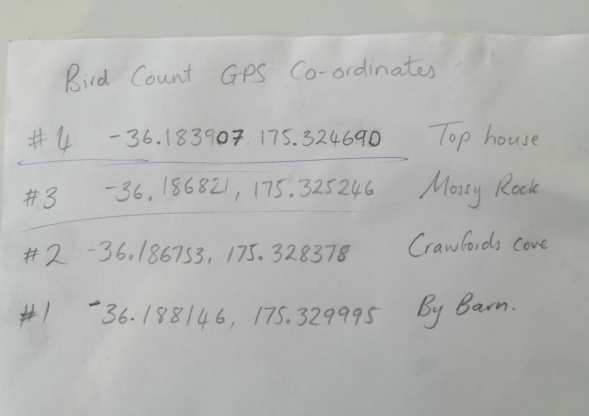 Bird Count GPS Co-ordinates
#4 -36.183907, 175.324690 Top house
#3 -36.186821, 175.325246 Mossy Rock
#2 -36.186753, 175.328378 Crawfords cove
#1 -36.188146, 175.329995 By Barn.